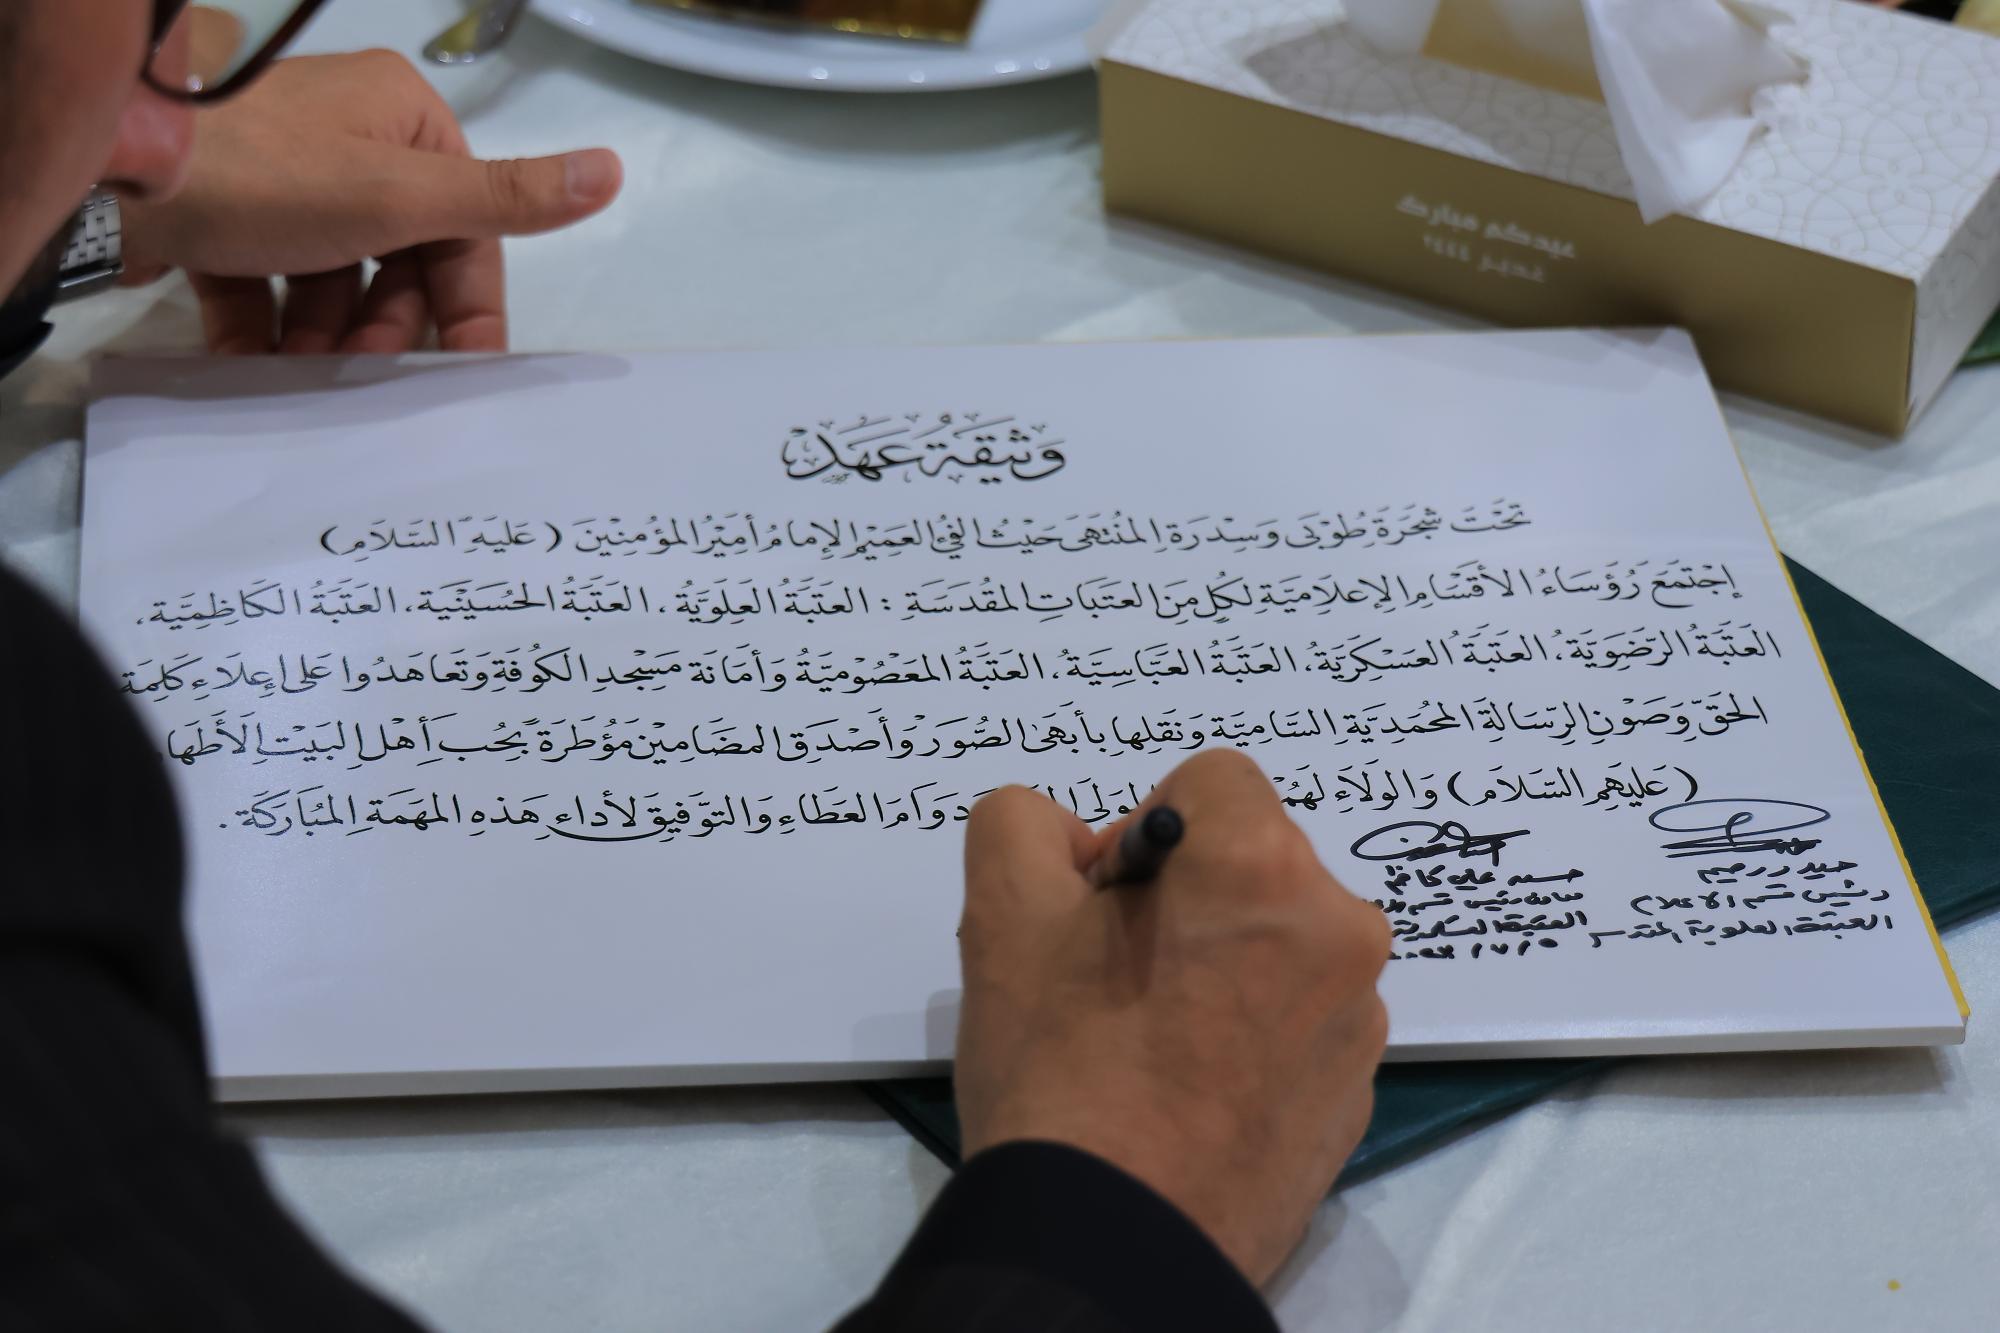 عيدكم مبارك
غدير ١٤٤٤
وَثيقَةُ عَهْد
تَحْتَ شَجَرَةِ طُوْبَى وَسِدْرَةِ المُنْتَهَى حَيْثُ الفَيْءُ العَمِيْمِ الإِمامُ أَمِيْرُ المُؤْمِنِيْنَ (عَلَيهِ السَّلَام)
إجْتَمَعَ رُؤَسَاءُ الأَقْسَامِ الإِعلَامِيَّةِ لِكُلٍ مِنَ العتَبَاتِ المُقَدَسَةِ : العَتَبَةُ العَلَوِيَّةُ، العَتَبَةُ الحُسَيْنِيَّة، العَتَبَةُ الكَاظِمِيَّة،
العَتَبَةُ الرَّضَوِيَّةُ، العَتَبَةُ العَسكَرِيَّةُ، العَتَبَةُ العَبَّاسِيَّةُ، العَتَبَةُ المَعْصُوْمِيَّةُ وَأمَانَة مَسْجِدِ الكُوفَةِ وَتَعَاهَدُوا عَلى إِعلَاءِ كَلِمَة
الحَقِّ وَصَوْنِ الرِّسَالَةِ المُحُمَديَّةِ السَّامِيَّةِ وَنَقلِها بِأَبهَىٰ الصُّوَر وَأَصْدَقِ المضَامِيْن مؤَطَرَةً بحُب أَهْلِ البَيْتِ الأَطْهار
(عَليهِم السَّلَام) وَالوَلَاءِ لَهُمْ دَوَامَ العَطَاءِ وَالتَوَّفِيقَ لأداءِ هَذهِ المَهَمَةِ المُبَارَكَة .
حيدر رحيم
رئيس قسم الاعلام
العتبة العلوية المقدسة
حسن علي كاظم
معاون رئيس قسم
العتبة العسكرية